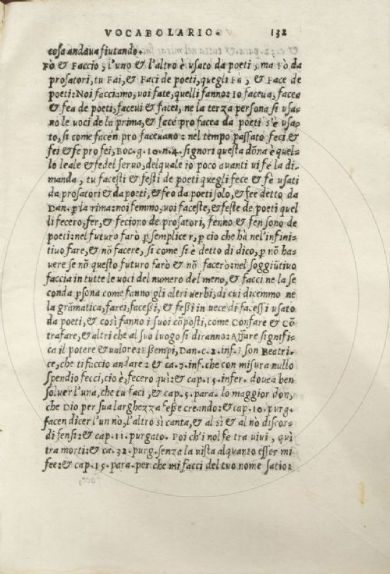 VOCABOLARIO. 132
cosa andaua fiutando.
Fo & Faccio, l'uno & l'altro è usato da poeti, ma Fò da
prosatori, tu Fai, & Faci de poeti, quegli Fà, & Face de
poeti: Noi facciamo, uoi fate, quelli fanno: Io faceua, facea
& fea de poeti, faceui & facei, ne la terza persona si usa-
no le uoci de la prima, & face pro facea da poeti s'è usa-
to, si come facen pro faceuano: nel tempo passato feci &
fei & fe pro fei, Boc. g. 10. n. 4. signori questa dōna è quel-
lo leale & fedel seruo, del quale io poco auanti ui fe la di-
manda, tu facesti & festi de poeti quegli fece & fe usati
da prosatori & da poeti, & feo da poeti solo, & fee detto da
Dan. p la rima: noi femmo, uoi faceste, & feste de poeti quel
li fecero, fer, & feciono de prosatori, fenno & fen sono de
poeti: nel futuro farò p semplice r, p cio che hà nel'infini-
tiuo fare, & nō facere, si come si è detto di dico, p nō ha-
uere se nō questo futuro farò & nō facerò: nel soggiūtiuo
faccia in tutte le uoci del numero del meno, & facci ne la se
conda psona come fanno gli altri uerbi, di cui dicemmo ne
la grāmatica, farei, facessi, & fessi in uece di facessi usato
da poeti, & così fanno i suoi cōposti, come Confare & Cō
trafare, & altri che al suo luogo si diranno: Affare signifi-
ca il potere & ualore: Essempi, Dan. c. 2. inf. i son Beatri-
ce, che ti fuccio andare: & ca. 7. inf. che con misura nullo
spendio fecci, cio è, fecero qui: & cap. 15. infer. douea ben
soluer l'una, che tu faci, & cap. 5. para. lo maggior don,
che Dio per sua larghezza fesse creando: & cap. 10. purg.
facen dicer l'un nò, l'altro sì canta, & al sì & al nò discor-
di fensi: & cap. 11. purgato. Poi ch'i nol fe tra uiui, quì
tra morti: & ca. 32. purg. senza la uista alquanto esser mi
fee: & cap. 15. para. per che mi facci del tuo nome satio: